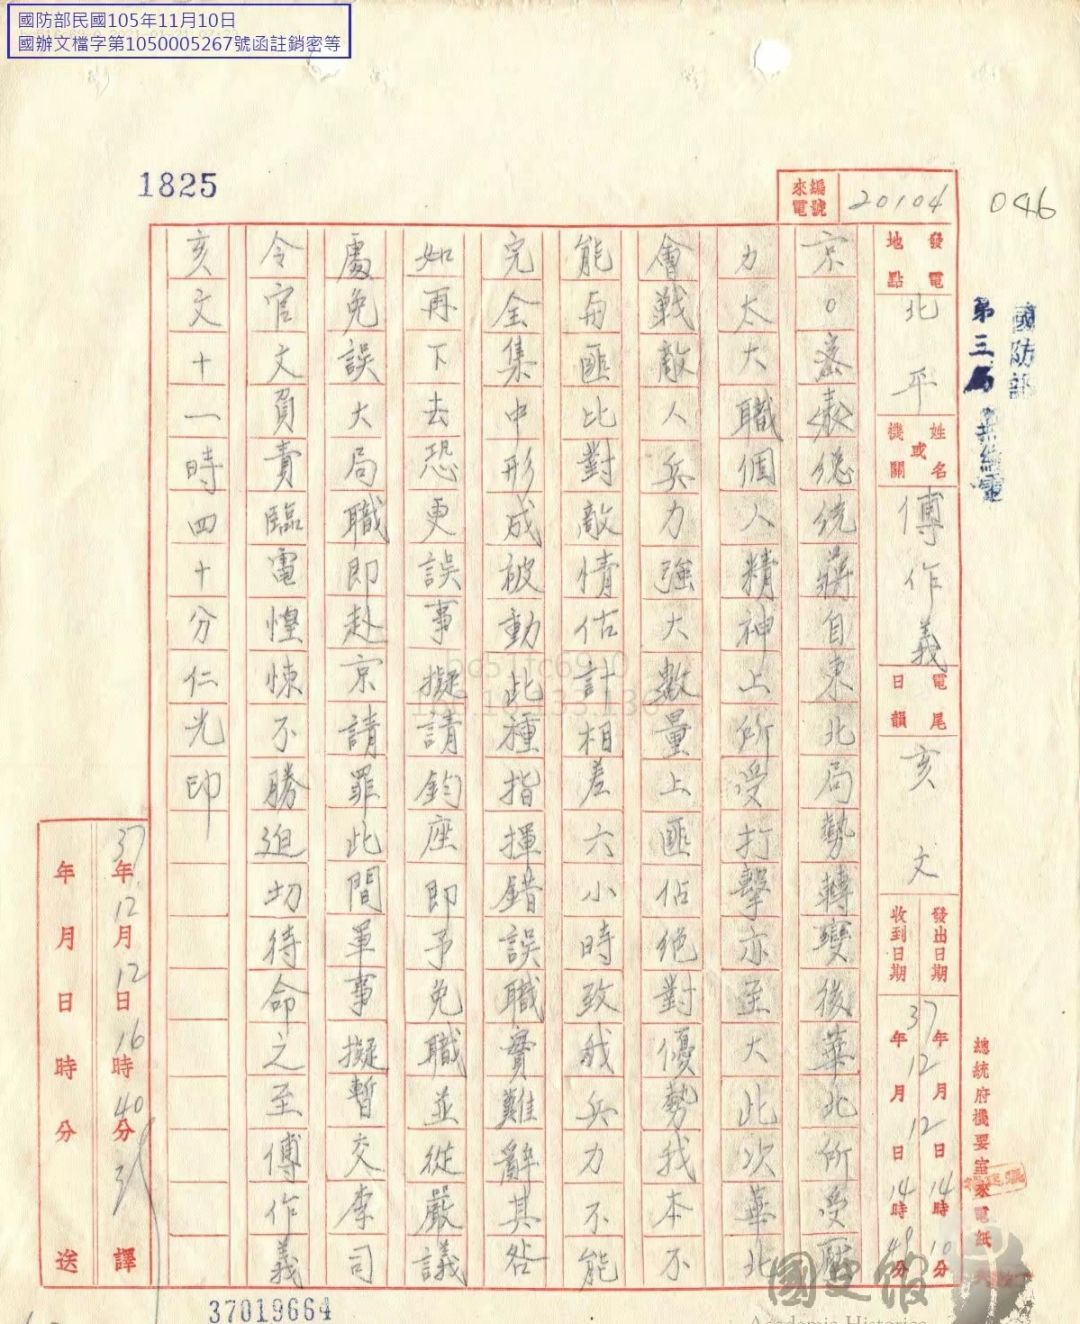 國防部民國105年11月10日
國辦文檔字第1050005267號函註銷密等
1825
046
國防部
第三局
來電編號
20104
發電地點
北平
姓名或機關
傅作義
電尾日韻
亥文
發出日期
37年12月12日14時10分
收到日期
年月日14時49分
總統府機要室來電紙
京○密表總統蔣自東北局勢轉變後華北所受壓
力太大職個人精神上所受打擊亦至大此次華北
會戰敵人兵力強大數量上匪佔絕對優勢我本不
能與匪比對敵情估計相差六小時致我兵力不能
完全集中形成被動此種指揮錯誤職實難辭其咎
如再下去恐更誤事擬請鈞座即予免職並從嚴議
處免誤大局職即赴京請罪此間軍事擬暫交李司
令官文負責臨電惶悚不勝迫切待命之至傅作義
亥文十一時四十分仁光印
37年12月12日16時40分 譯
年月日時分 送
37019664
國史館
Academia Historica